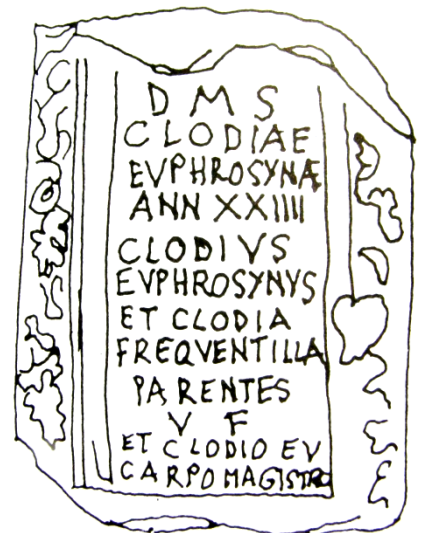 D M S
CLODIAE
EVPHROSYNÆ
ANN XXIIII
CLODIVS
EVPHROSYNVS
ET CLODIA
FREQVENTILLA
PARENTES
V F
ET CLODIO EV
CARPO MAGISTRO